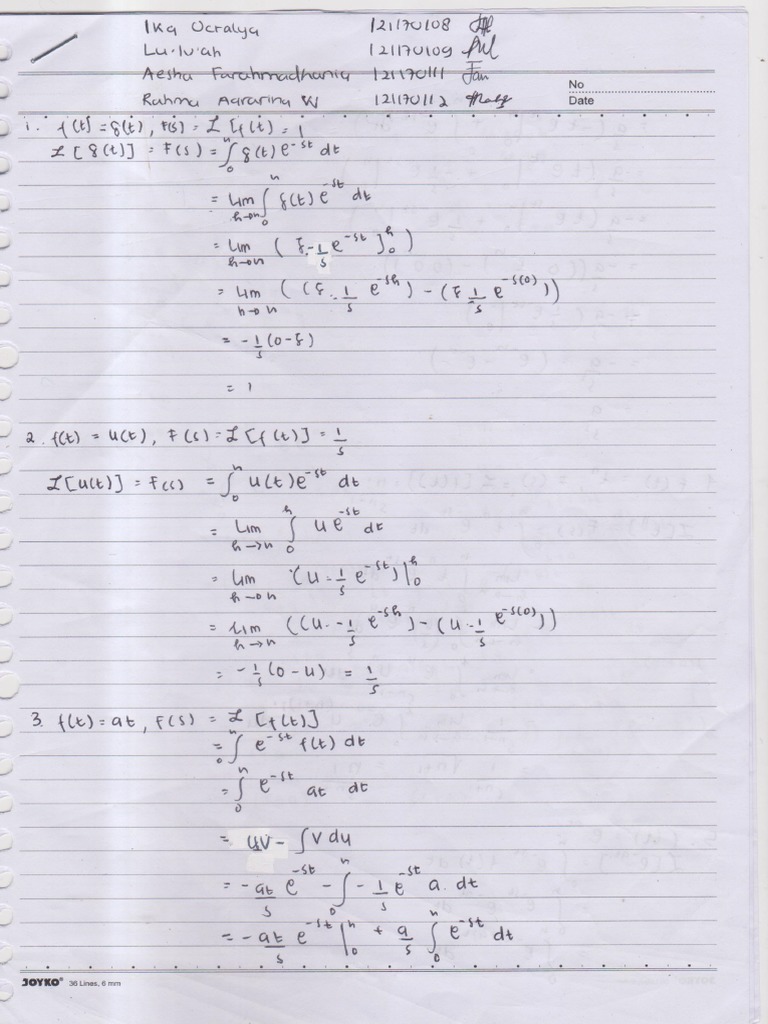 Ika Ucralya 121170108
Lu'lu'ah 121170109
Aesha Farahmadhania 121170111
Rahma 121170112
No
Date
1. f(t) = δ(t), F(s) = ℒ [f(t) = 1
ℒ [δ(t)] = F(s) = ∫₀ⁿ δ(t) e^-st dt
= Lim h→n ∫₀ⁿ δ(t) e^-st dt
= Lim h→n ( δ. -1/s e^-st ]₀ʰ )
= Lim h→n ( (δ. -1/s e^-sh ) - (δ 1/s e^-s(0) ))
= -1/s (0-δ)
= 1
2. f(t) = u(t), F(s) = ℒ [f(t)] = 1/s
ℒ[u(t)] = F(s) = ∫₀ⁿ u(t) e^-st dt
= Lim h→n ∫₀ʰ u e^-st dt
= Lim h→n (u - 1/s e^-st )|₀ʰ
= Lim h→n ((u. -1/s e^-sh ) - (u. -1/s e^-s(0) ))
= -1/s (0 - u) = 1/s
3. f(t) = at, F(s) = ℒ [f(t)]
= ∫₀ⁿ e^-st f(t) dt
= ∫₀ⁿ e^-st at dt
= uv - ∫ v du
= -at/s e^-st - ∫₀ⁿ -1/s e^-st a. dt
= -at/s e^-st |₀ⁿ + a/s ∫₀ⁿ e^-st dt
JOYKO® 36 Lines, 6 mm